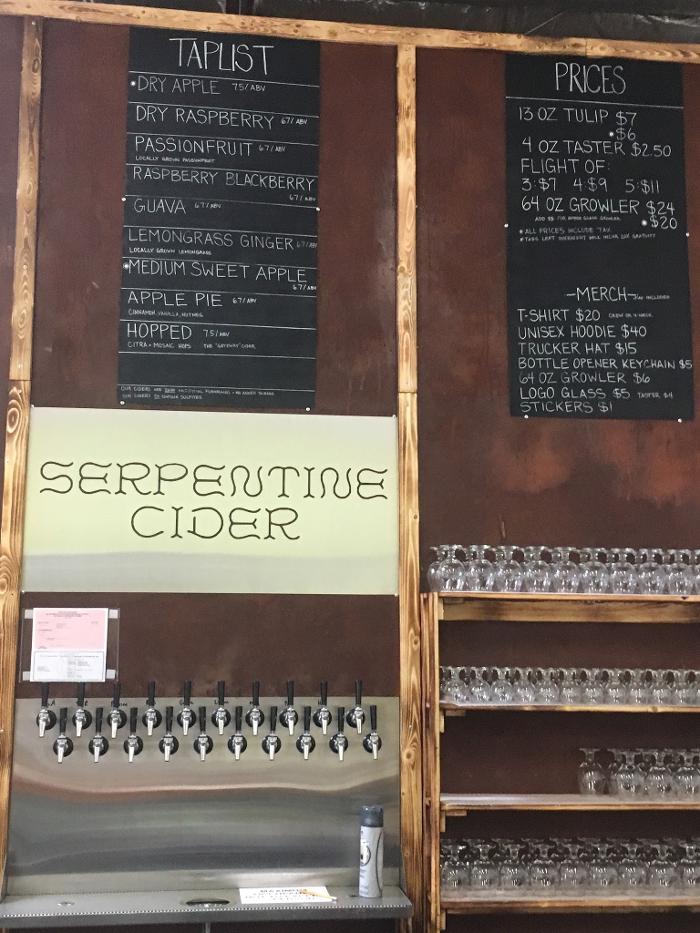 TAPLIST
*DRY APPLE 7% ABV
DRY RASPBERRY 6% ABV
PASSIONFRUIT 6% ABV
LOCALLY GROWN PASSIONFRUIT
RASPBERRY BLACKBERRY
6% ABV
GUAVA 6% ABV
LEMONGRASS GINGER 6% ABV
LOCALLY GROWN LEMONGRASS
*MEDIUM SWEET APPLE
6% ABV
APPLE PIE 6% ABV
CINNAMON, VANILLA, NUTMEG
HOPPED 7% ABV
CITRA + MOSAIC HOPS THE "GATEWAY" CIDER
SERPENTINE
CIDER
PRICES
13 OZ TULIP $7
*$6
4 OZ TASTER $2.50
FLIGHT OF:
3:$7 4:$9 5:$11
64 OZ GROWLER $24
*$20
*ALL PRICES INCLUDE TAX
*TABS LEFT OVERNIGHT WILL INCUR 20% GRATUITY
-MERCH- TAX INCLUDED
T-SHIRT $20 CREW OR V-NECK
UNISEX HOODIE $40
TRUCKER HAT $15
BOTTLE OPENER KEYCHAIN $5
64 OZ GROWLER $6
LOGO GLASS $5 TASTER $4
STICKERS $1